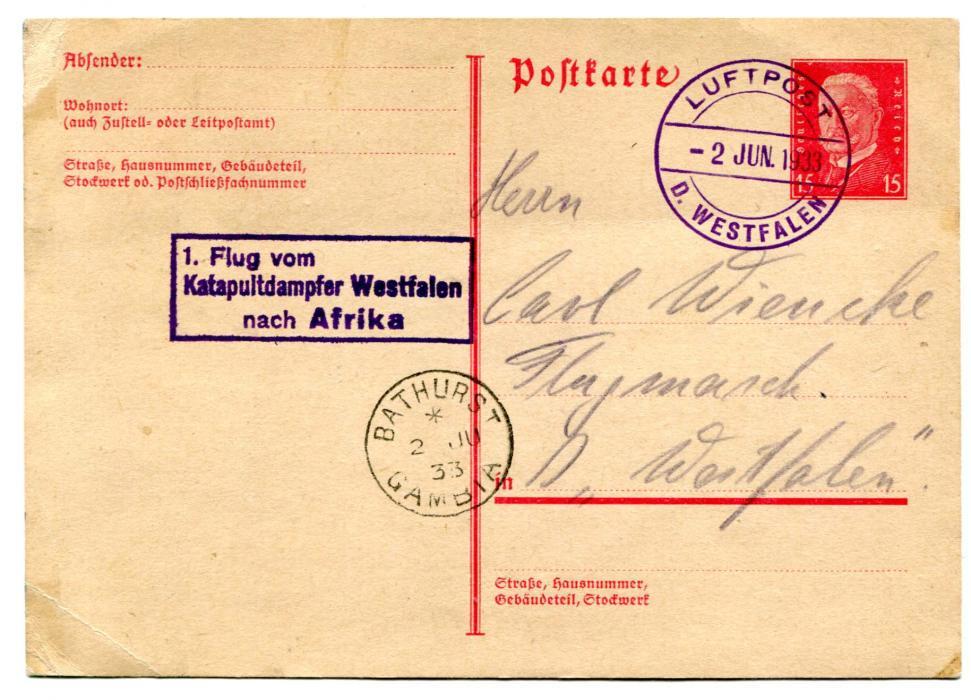 Absender:
Wohnort:
(auch Zustell- oder Leitpostamt)
Straße, Hausnummer, Gebäudeteil,
Stockwerk od. Postschließfachnummer
1. Flug vom
Katapultdampfer Westfalen
nach Afrika
BATHURST
*
2 JU
33
GAMBIA
Postkarte
LUFTPOST
- 2 JUN. 1933
D. WESTFALEN
15 15
Herrn
Carl Wiencke
Flugmasch.
in D. „Westfalen“.
Straße, Hausnummer,
Gebäudeteil, Stockwerk